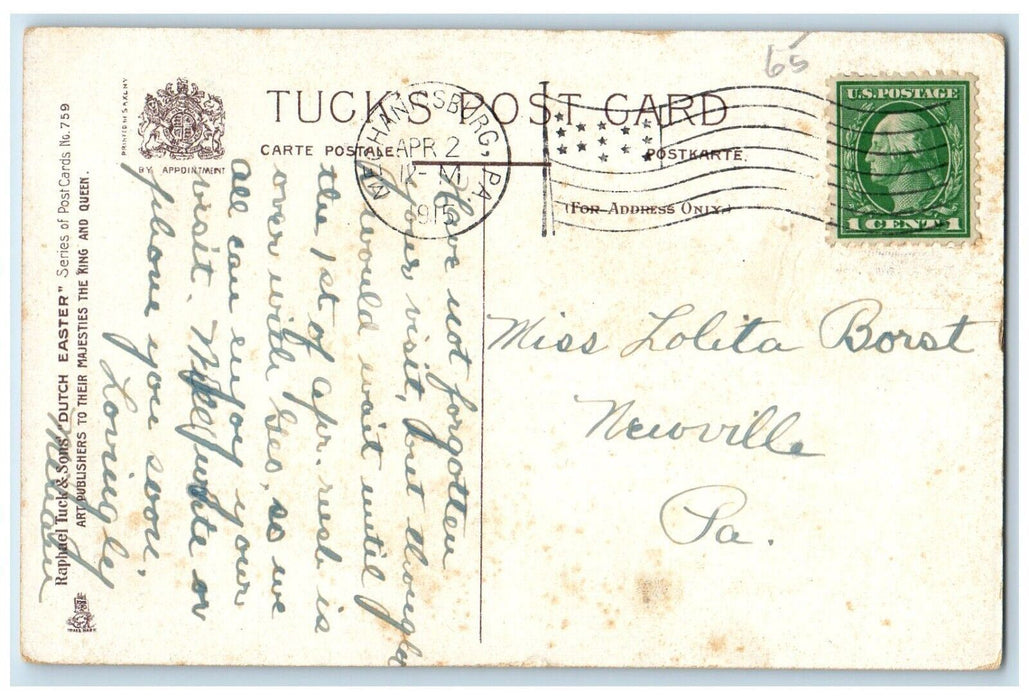 65
TUCK'S POST CARD
CARTE POSTALE
POSTKARTE.
(FOR ADDRESS ONLY.)
PRINTED IN SAXONY
BY APPOINTMENT
MECHANICSBURG, PA.
APR 2
12-M
1915
U.S. POSTAGE
1 CENT 1
Miss Lolita Borst
Newville
Pa.
Have not forgotten
your visit, but thought
I would wait until
the 1st of Apr. rush is
over with Geo, so we
all can enjoy your
visit. Will write or
phone you soon.
Lovingly
Raphael Tuck & Sons' "DUTCH EASTER" Series of Post Cards No. 759
ART PUBLISHERS TO THEIR MAJESTIES THE KING AND QUEEN.
TRADE MARK